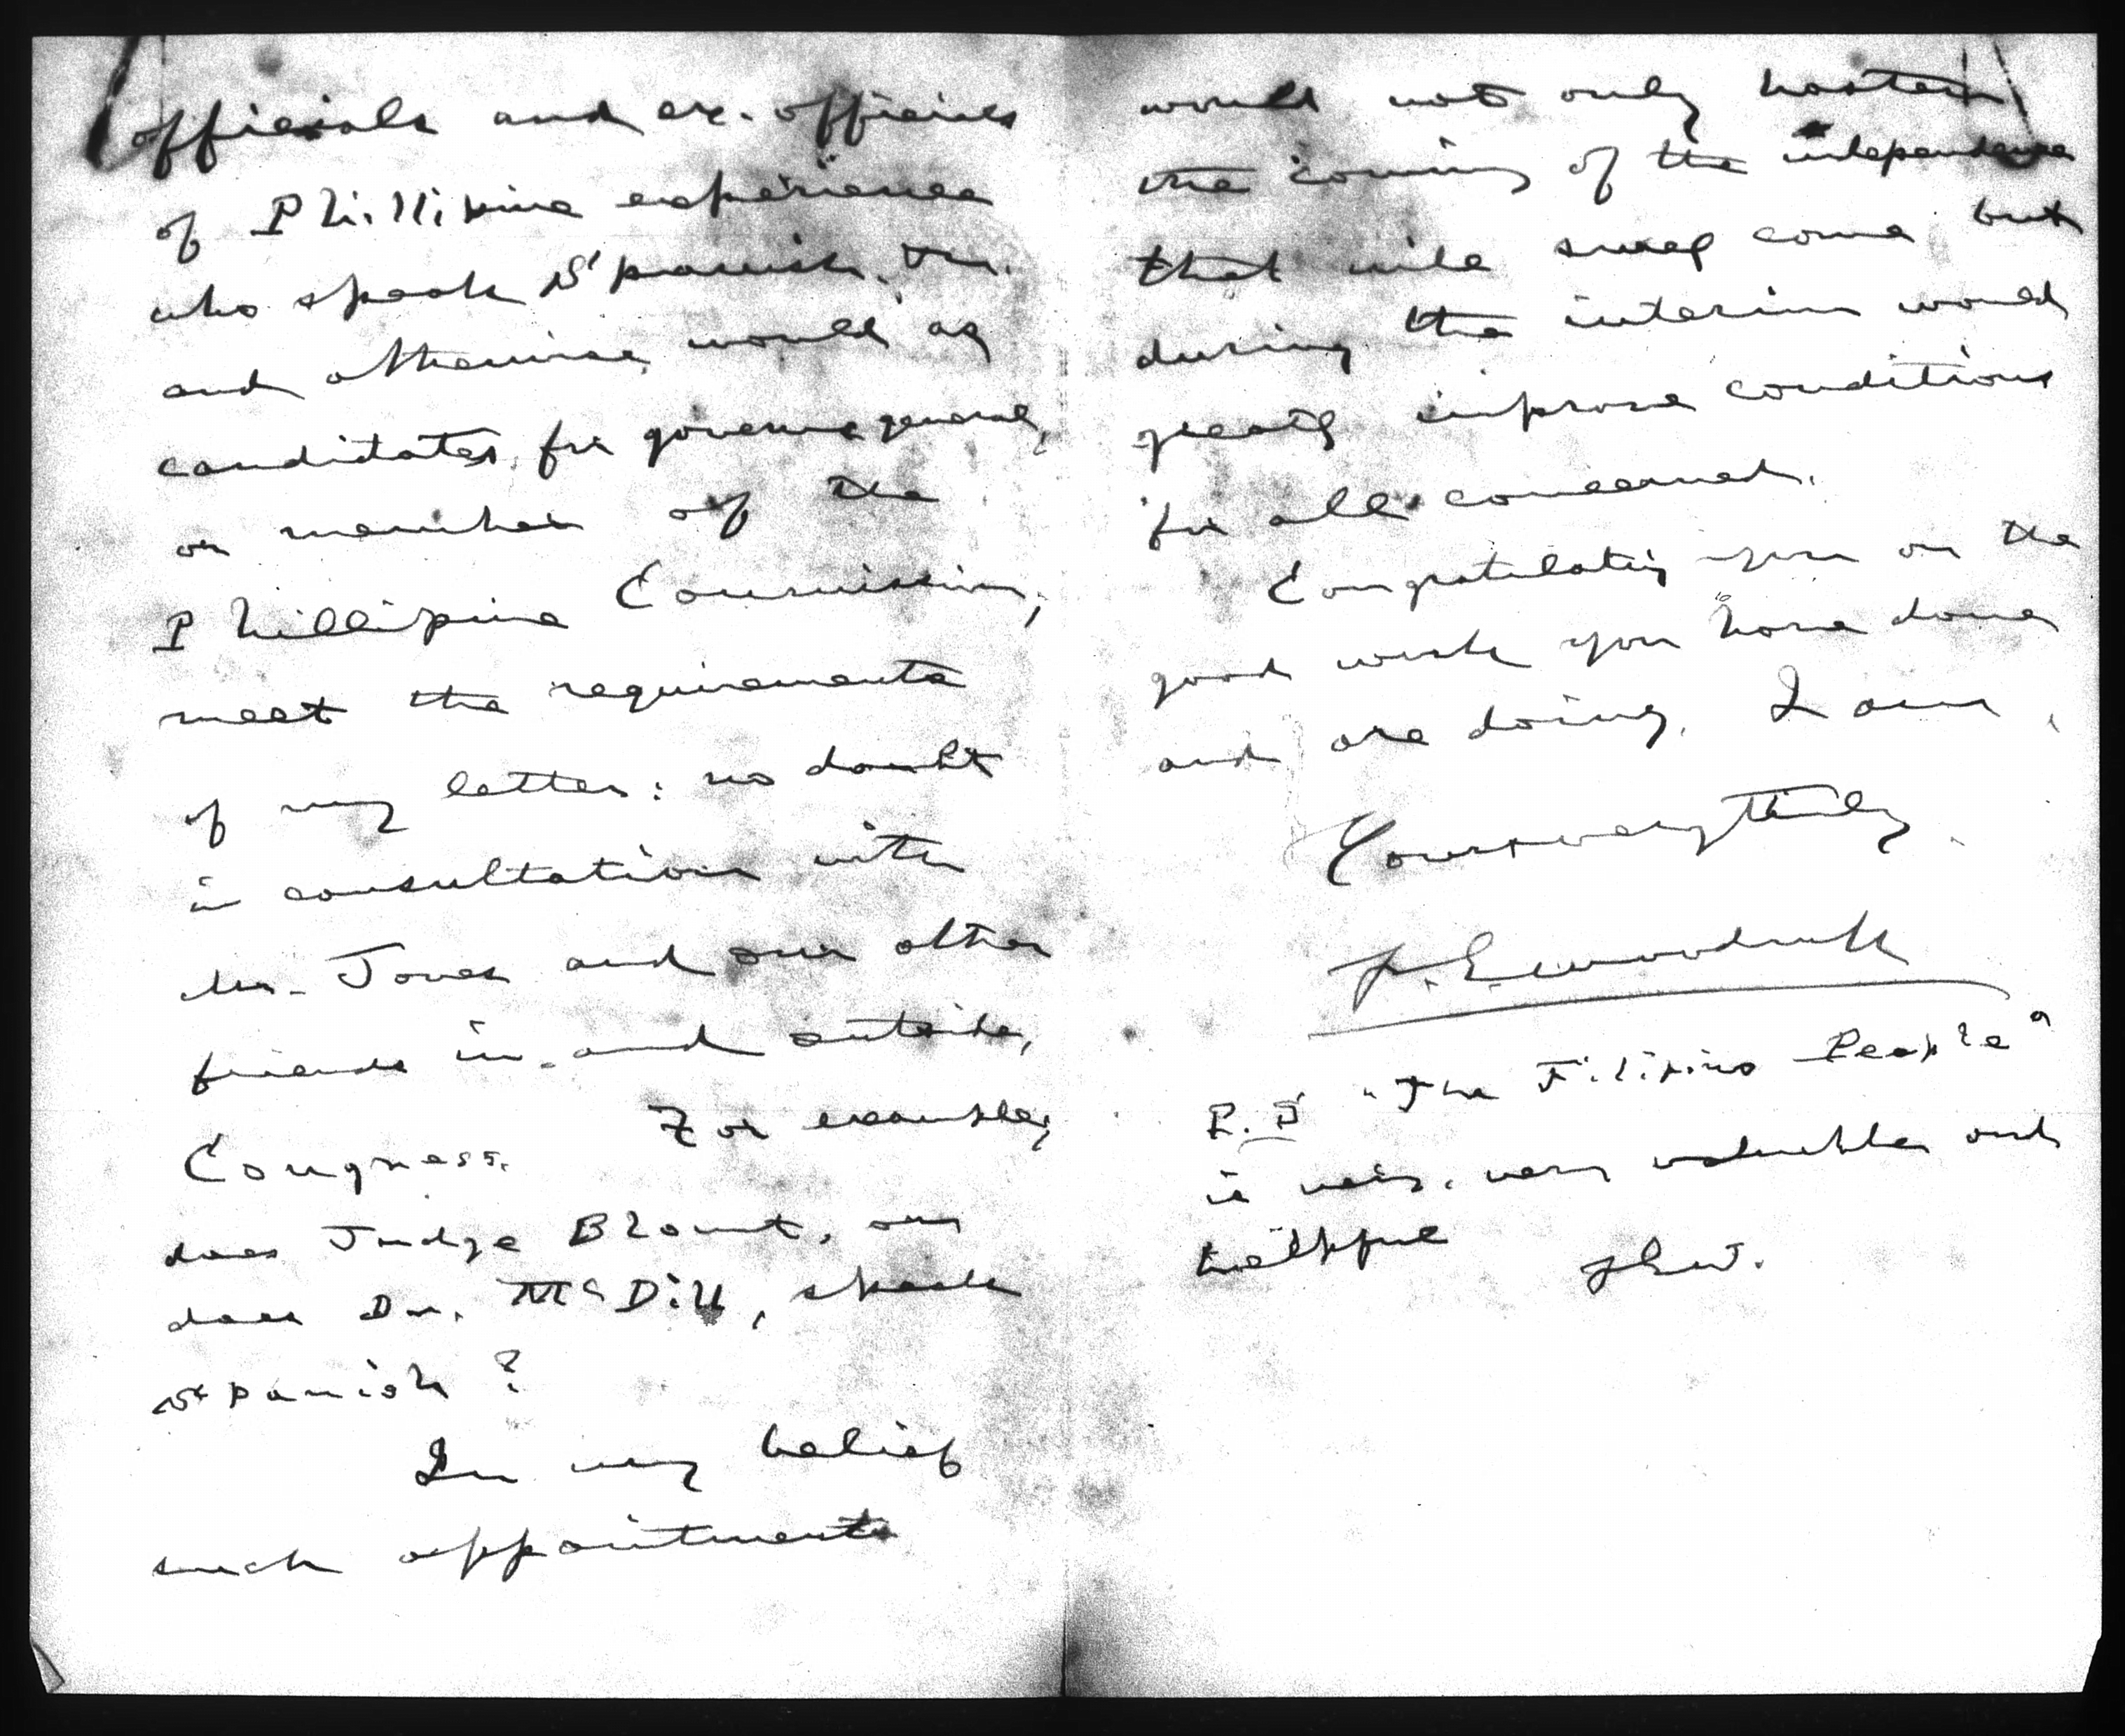 officials and ex. officials
of Phillipine experience
who speak Spanish,
and otherwise would as
candidates for governor general,
or member of the
Phillipine Commission,
meet the requirements
of my letter: no doubt
in consultation with
Mr. Jones and our other
friends in and outside,
Congress. For example,
does Judge Blount, or
does Dr. McDill, speak
Spanish?
In my belief
such appointments
would not only hasten
the coming of the independence
that will surely come but
during the interim would
greatly improve conditions
for all concerned.
Congratulating you on the
good work you have done
and are doing, I am,
Yours very truly
E. Woodruff
P.S "The Filipino People"
is very, very valuable and
helpful